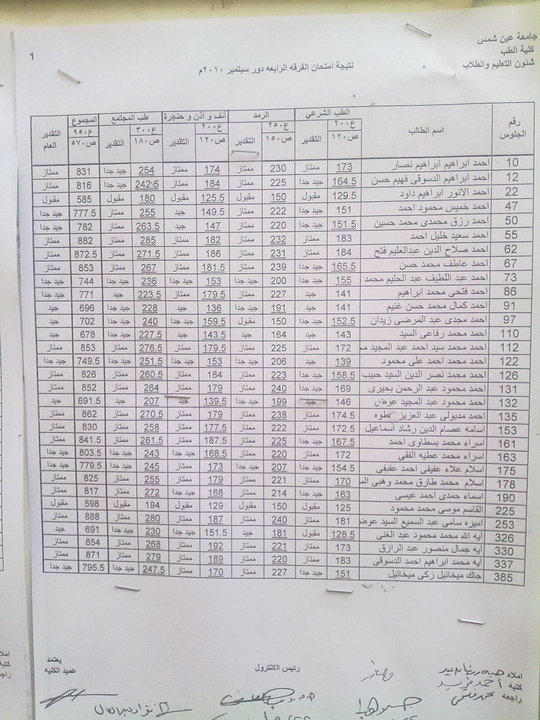 جامعة عين شمس
كلية الطب
شئون التعليم والطلاب
1
نتيجة امتحان الفرقه الرابعه دور سبتمبر ٢٠١٠م
رقم الجلوس اسم الطالب الطب الشرعي الرمد أنف و أذن و حنجرة طب المجتمع المجموع التقدير العام
ع٢٠٠ ص١٢٠ التقدير ع٢٥٠ ص١٥٠ التقدير ع٢٠٠ ص١٢٠ التقدير ع٣٠٠ ص١٨٠ التقدير ع٩٥٠ ص٥٧٠
10 احمد ابراهيم ابراهيم نصار 173 ممتاز 230 ممتاز 174 ممتاز 254 جيد جدا 831 ممتاز
12 احمد ابراهيم الدسوقى فهيم حسن 164.5 جيد جدا 225 ممتاز 184 ممتاز 242.5 جيد جدا 816 ممتاز
22 احمد الانور ابراهيم داود 129.5 مقبول 150 مقبول 125.5 مقبول 180 مقبول 585 مقبول
47 احمد خميس محمود احمد 151 جيد جدا 222 ممتاز 149.5 جيد 255 ممتاز 777.5 جيد جدا
50 احمد رزق محمدى محمد حسين 151.5 جيد جدا 220 ممتاز 147 جيد 263.5 ممتاز 782 جيد جدا
55 احمد سعيد خليل احمد 183 ممتاز 232 ممتاز 182 ممتاز 285 ممتاز 882 ممتاز
62 احمد صلاح الدين عبدالعليم فتح 184 ممتاز 231 ممتاز 186 ممتاز 271.5 ممتاز 872.5 ممتاز
67 احمد عاطف محمد حسن 165.5 جيد جدا 239 ممتاز 181.5 ممتاز 267 ممتاز 853 ممتاز
73 احمد عبد اللطيف عبد الحليم محمد 155 جيد جدا 200 جيد جدا 153 جيد جدا 236 جيد جدا 744 جيد جدا
86 احمد فتحى محمد ابراهيم 141 جيد 227 ممتاز 179.5 ممتاز 223.5 جيد 771 جيد جدا
91 احمد كمال محمد حسن غنيم 141 جيد 191 جيد جدا 136 جيد 228 جيد جدا 696 جيد
97 احمد مجدى عبد المرضى زيدان 152.5 جيد جدا 150 مقبول 159.5 جيد جدا 240 جيد جدا 702 جيد
110 احمد محمد رفاعى السيد 143 جيد 164 جيد 143.5 جيد 227.5 جيد جدا 678 جيد
112 احمد محمد سيد احمد عبد المجيد 172 ممتاز 225 ممتاز 179.5 ممتاز 276.5 ممتاز 853 ممتاز
122 احمد محمد احمد على محمود 139 جيد 206 جيد جدا 153 جيد جدا 251.5 جيد جدا 749.5 جيد جدا
126 احمد محمد نصر الدين السيد حبيب 158.5 جيد جدا 223 ممتاز 184 ممتاز 260.5 ممتاز 826 ممتاز
131 احمد محمود عبد الرحمن بحيرى 169 جيد جدا 240 ممتاز 179 ممتاز 264 ممتاز 852 ممتاز
132 احمد محمود عبد المجيد 146 جيد 199 جيد جدا 139.5 جيد 207 جيد 691.5 جيد
135 احمد مدبولى عبد العزيز 174.5 ممتاز 238 ممتاز 179 ممتاز 270.5 ممتاز 862 ممتاز
153 اسامه عصام الدين رشاد اسماعيل 172.5 ممتاز 222 ممتاز 177.5 ممتاز 258 ممتاز 830 ممتاز
161 اسراء محمد بسطاوى احمد 167.5 جيد جدا 225 ممتاز 187.5 ممتاز 261.5 ممتاز 841.5 ممتاز
163 اسراء محمد عطيه الفقى 172 ممتاز 220 ممتاز 168.5 جيد جدا 243 جيد جدا 803.5 جيد جدا
175 اسلام علاء عفيفى احمد عفيفى 154.5 جيد جدا 207 جيد جدا 173 ممتاز 245 جيد جدا 779.5 جيد جدا
178 اسلام محمد طارق محمد وهبى 170 ممتاز 221 ممتاز 179 ممتاز 255 ممتاز 825 ممتاز
190 اسماء حمدى احمد عيسى 163 جيد جدا 214 جيد جدا 168 جيد جدا 272 ممتاز 817 ممتاز
225 القاسم موسى محمد محمود 125 مقبول 150 مقبول 129 مقبول 194 مقبول 598 مقبول
253 اميره سامى عبد السميع السيد 181 ممتاز 240 ممتاز 187 ممتاز 280 ممتاز 888 ممتاز
326 آيه الله محمد محمود عبد الغنى 128.5 مقبول 181 جيد 151.5 جيد جدا 230 جيد جدا 691 جيد
330 آيه جمال منصور عبد الرازق 173 ممتاز 221 ممتاز 192 ممتاز 268 ممتاز 854 ممتاز
337 آيه محمد ابراهيم احمد الدسوقى 183 ممتاز 220 ممتاز 189 ممتاز 279 ممتاز 871 ممتاز
385 جاك ميخائيل زكى ميخائيل 151 جيد جدا 227 ممتاز 170 ممتاز 247.5 جيد جدا 795.5 جيد جدا
املاه
كتبه
راجعه
رئيس الكنترول
يعتمد
عميد الكليه